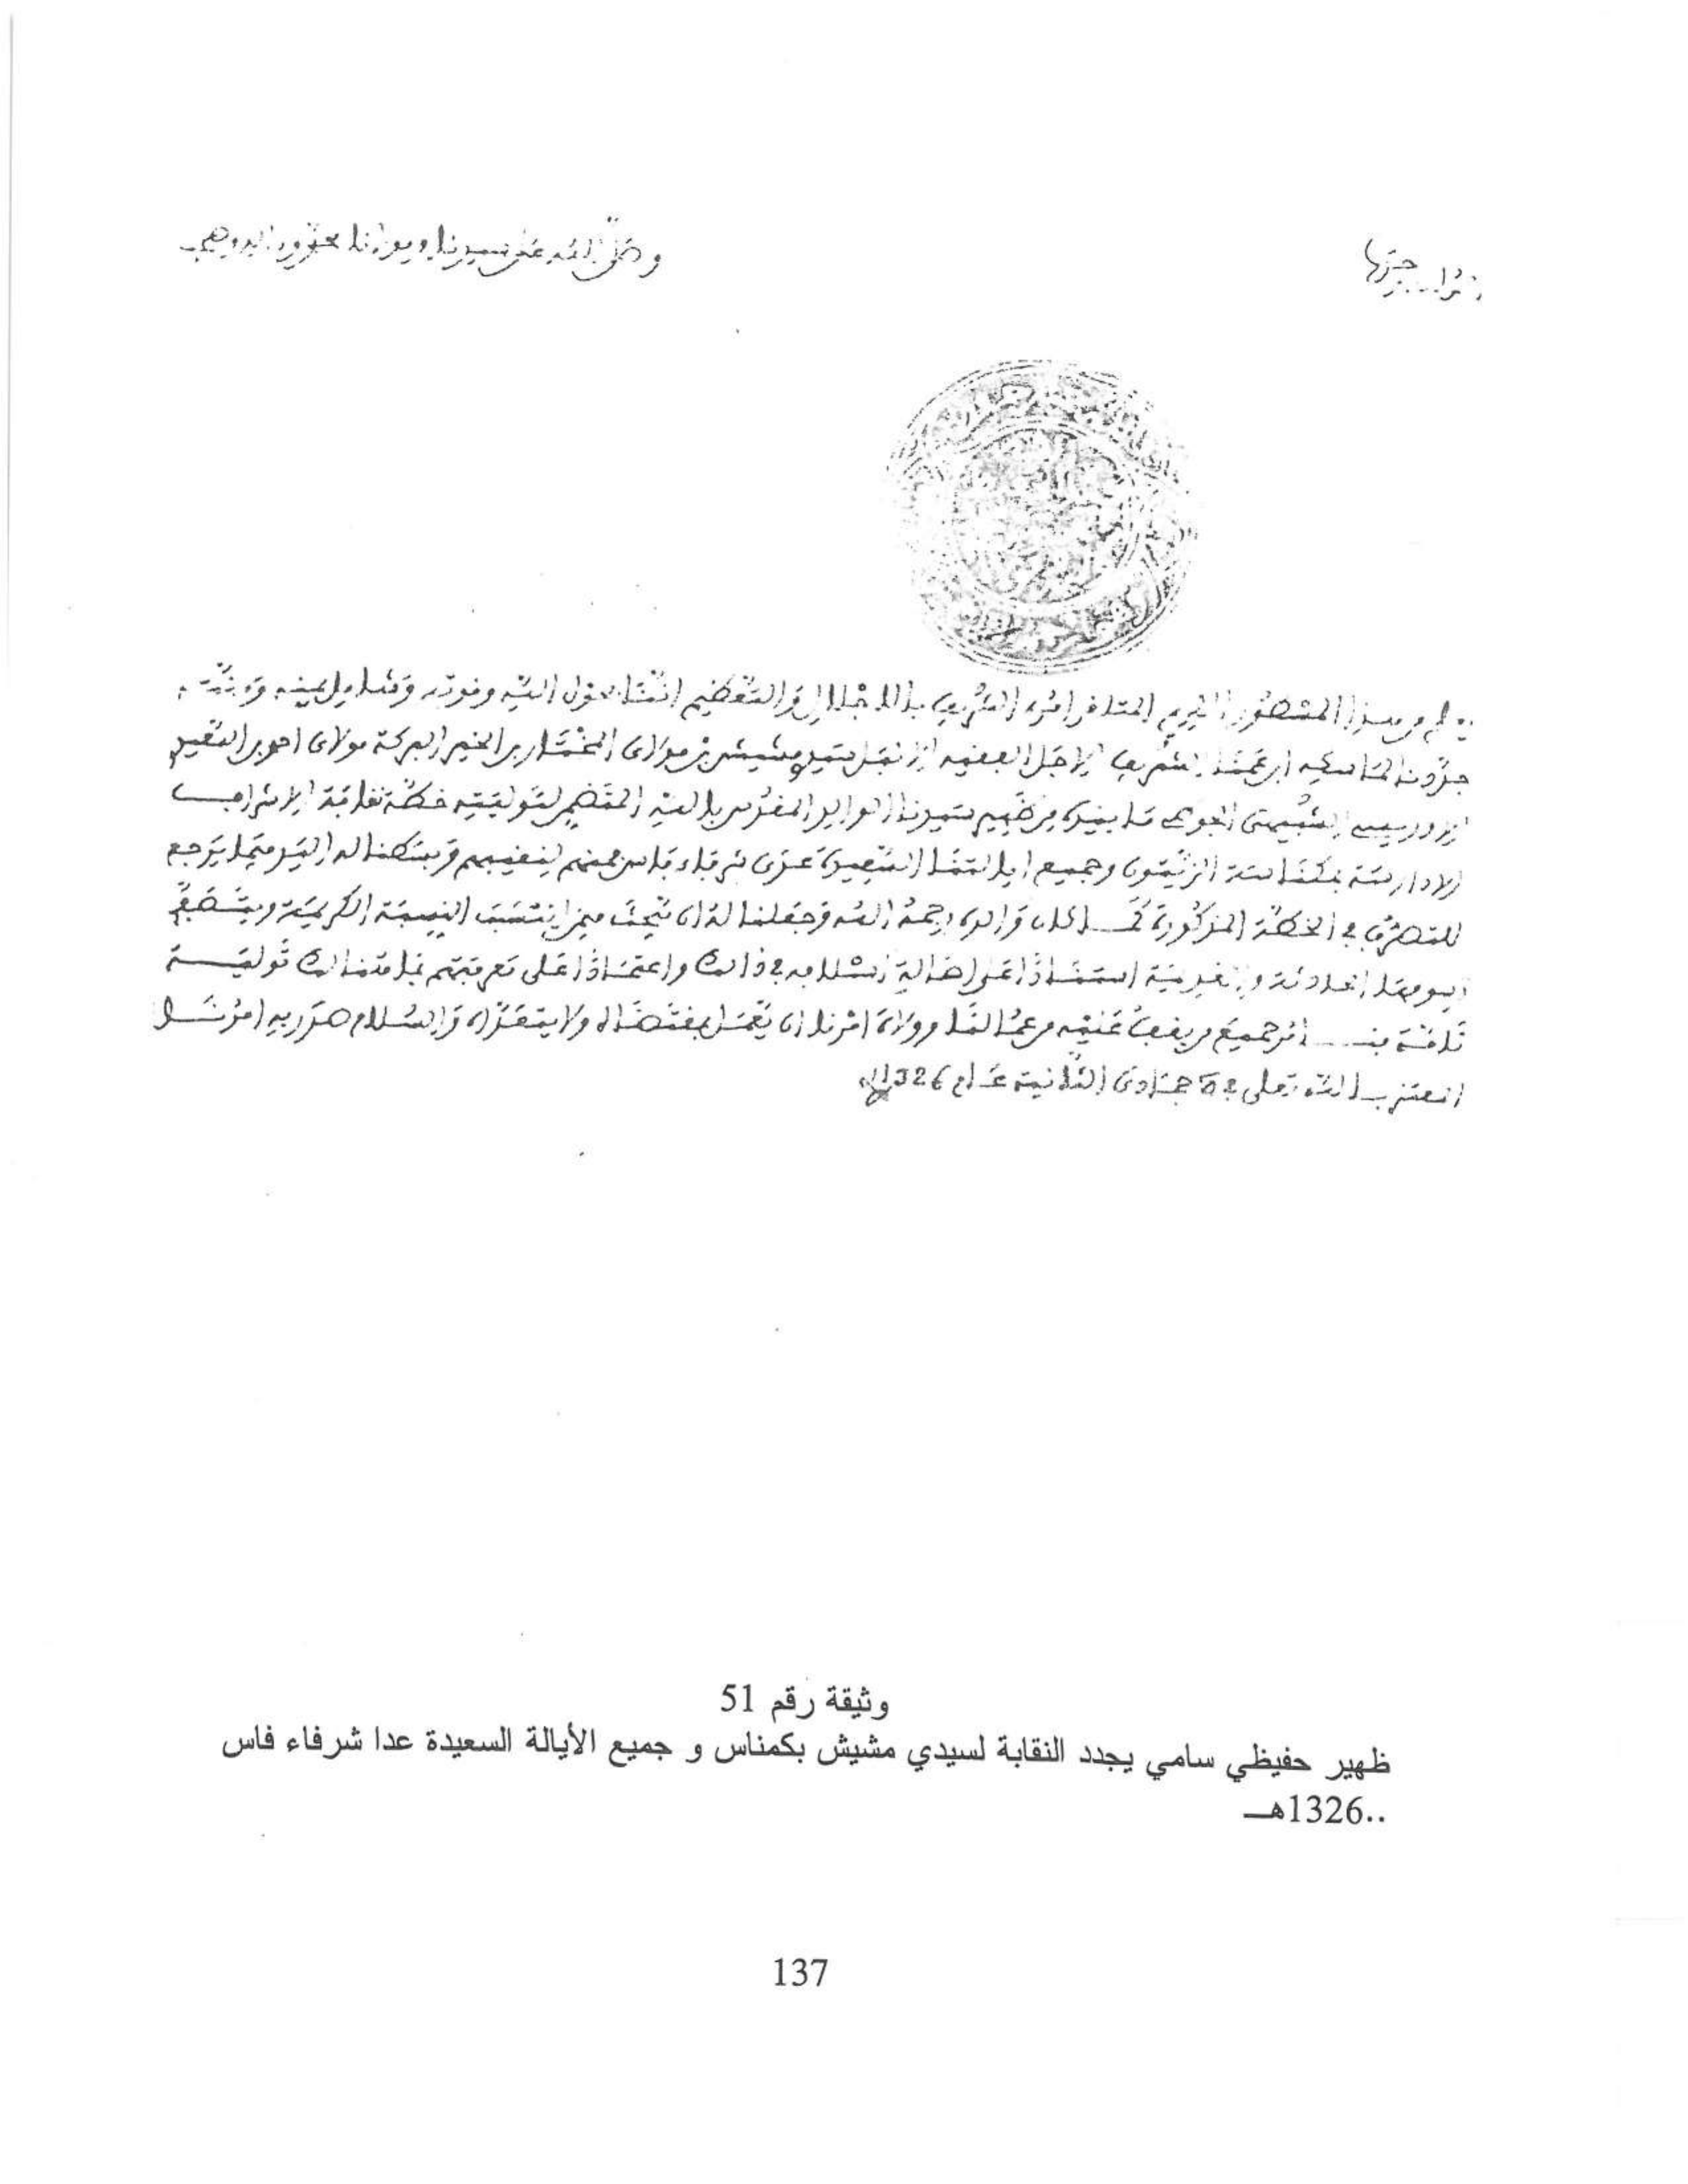 وصلى الله على سيدنا ومولانا محمد وآله وصحبه
يعلم من هذا المسطور الكريم المتلقى أمره الشريف بالاجلال والتعظيم اننا بحول الله وقوته وشامل يمنه ومنته
جددنا لماسكه ابن عمنا الشريف الاجل الفقيه الانبل سيدي مشيش بن مولاي المختار بن الخير البركة مولاي احمد بن
الادريسي الشبيهي الجوطي ما بيده من ظهير سيدنا الوالد المقدس بالله المتضمن لتوليته خطة نقابة الاشراف
الادارسة بمكناسة الزيتون وجميع ايالتنا السعيدة عدى شرفاء فاس منهم لنقيبهم وبسطنا له اليد فيما يرجع
للتصرف في الخطة المذكورة كما كان والده رحمه الله وجعلنا له ان يبحث فيمن ينتسب النسبة الكريمة
الحادثة والقديمة استنادا على اصالة اسلافه في ذالك واعتمادا على معرفتهم بما هنالك تولية
تامة من جميع من يقف عليه من عمالنا وولاة امرنا ان يعمل بمقتضاه ولا يتعداه والسلام صدر به امرنا
المعتز بالله تعلى في جمادى الثانية عام 1326
وثيقة رقم 51
ظهير حفيظي سامي يجدد النقابة لسيدي مشيش بكمناس و جميع الأيالة السعيدة عدا شرفاء فاس
..1326هـ
137